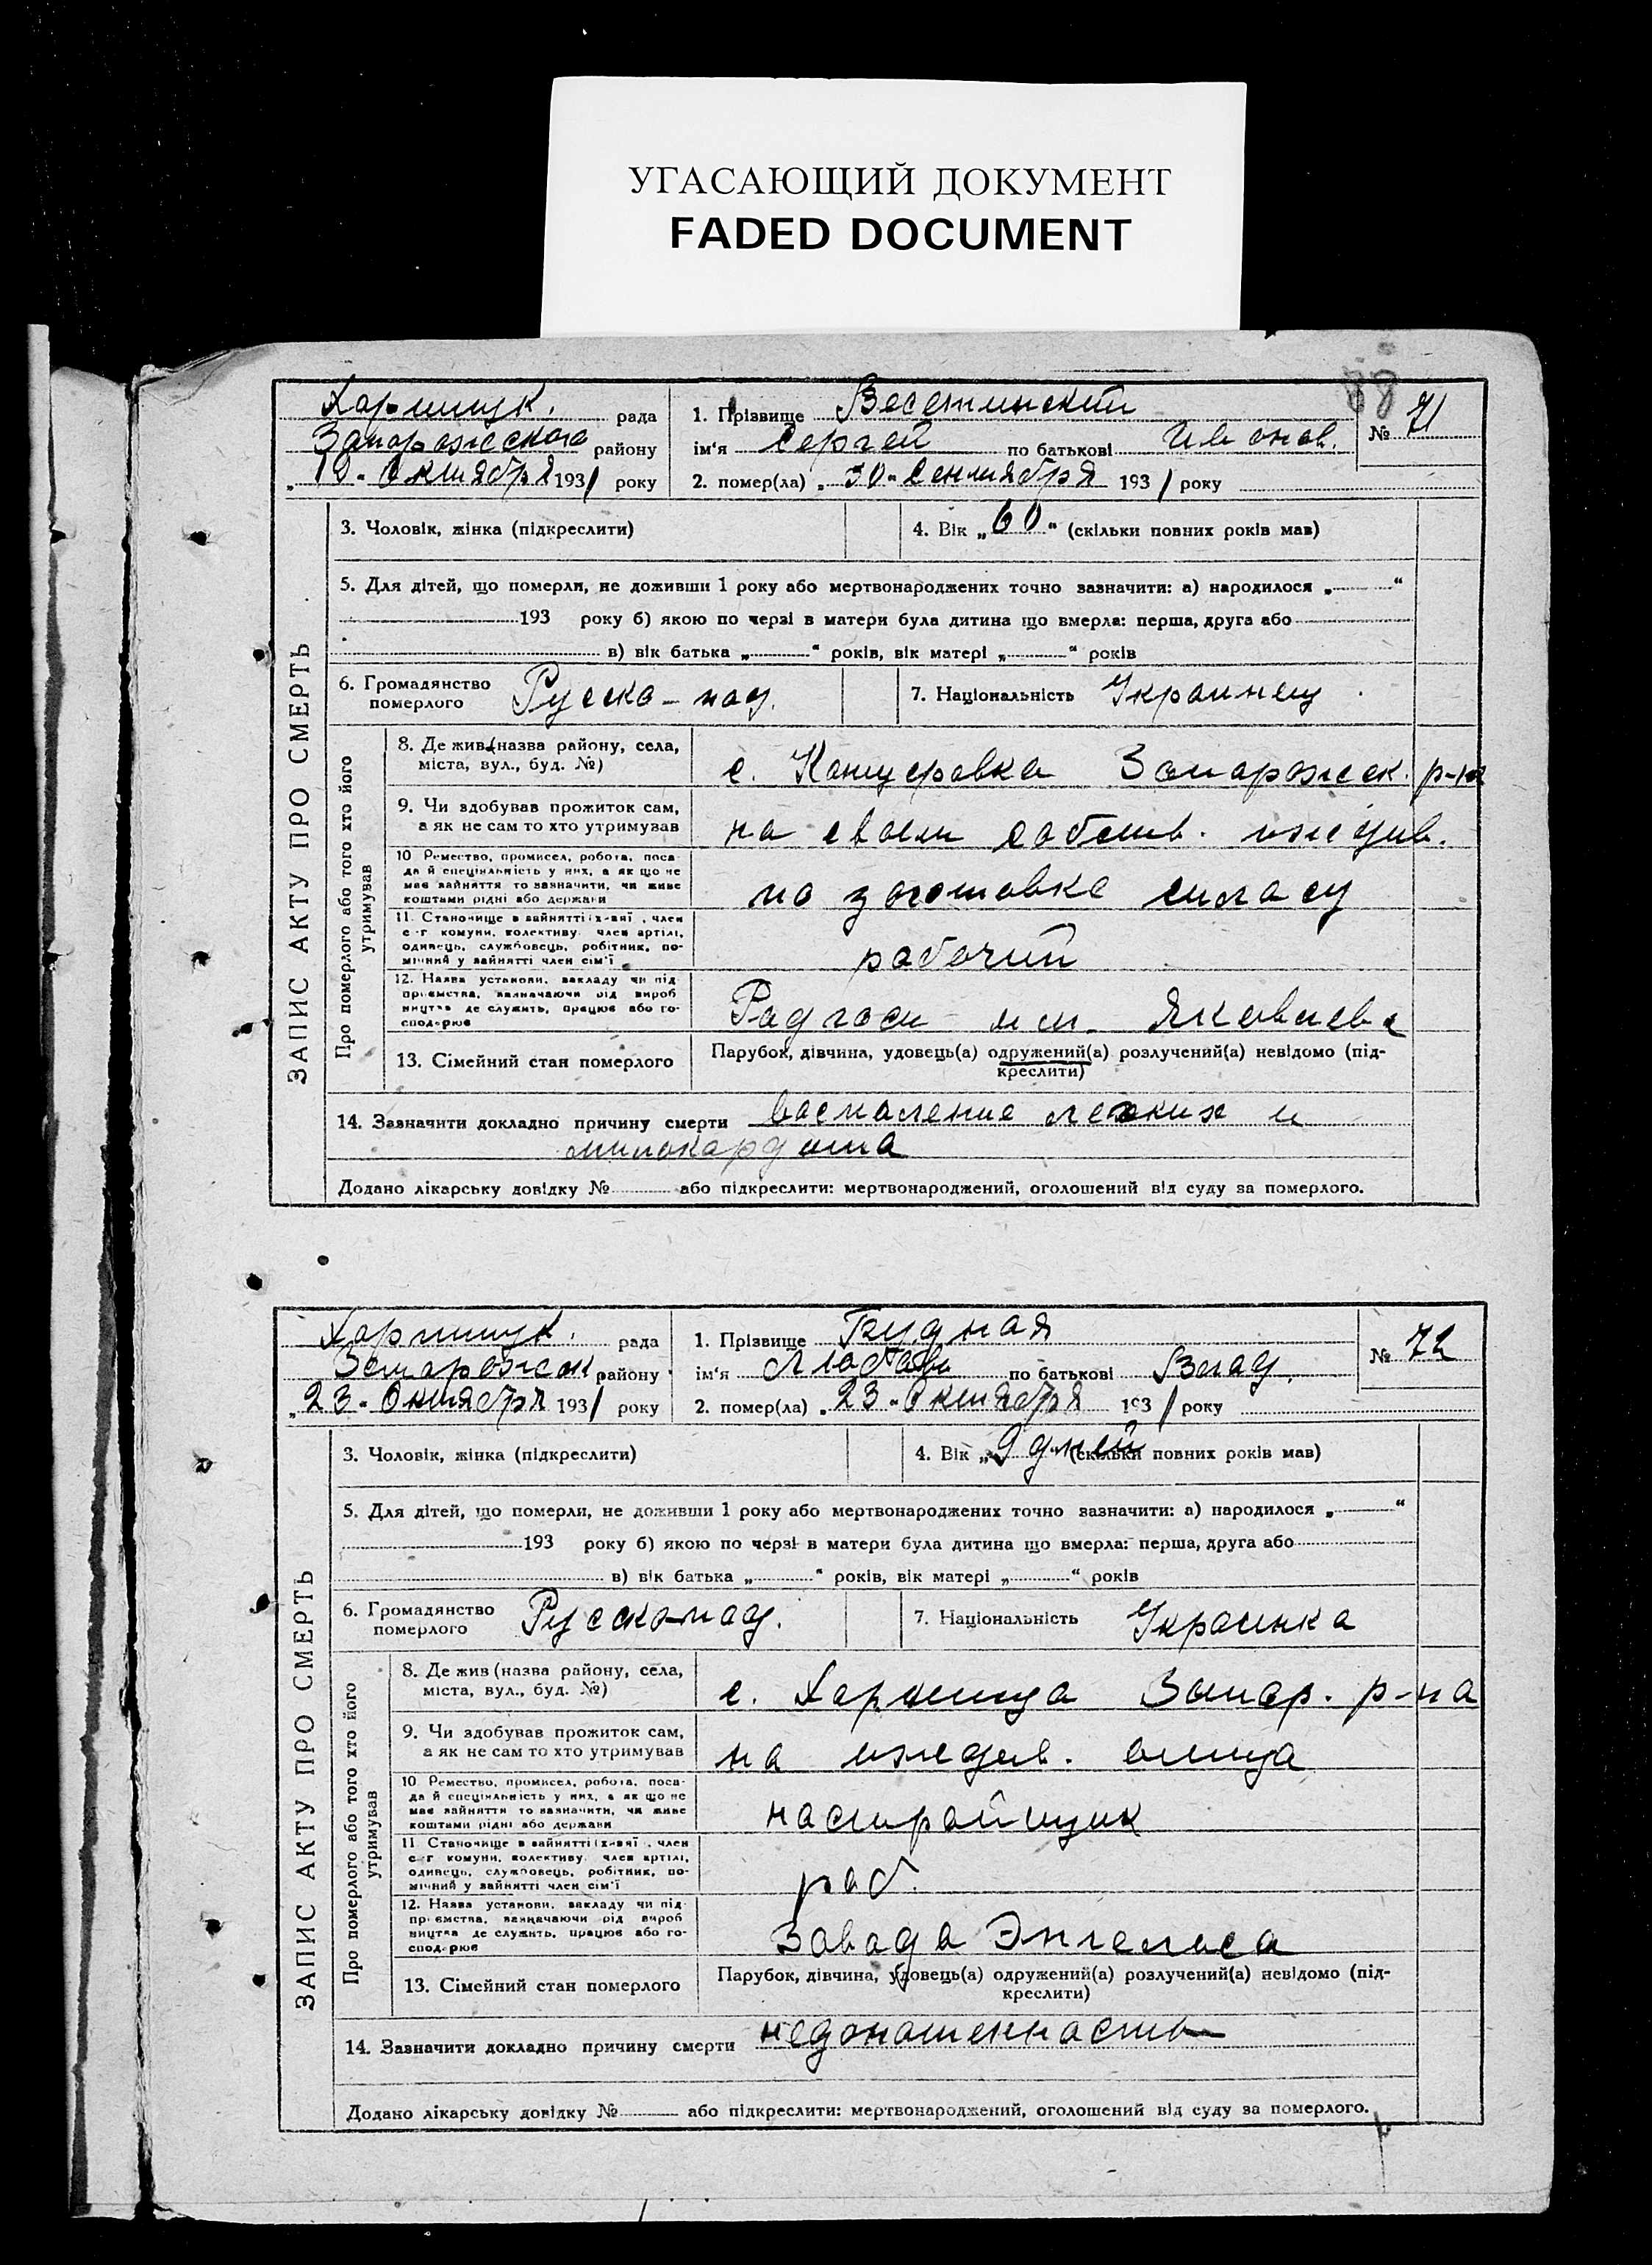 УГАСАЮЩИЙ ДОКУМЕНТ
FADED DOCUMENT
88
рада 1. Прізвище № 71
Запорожского району ім'я Сергей по батькові Иванов.
„10" Октября 1931 року 2. помер(ла) „30" Сентября 1931 року
3. Чоловік, жінка (підкреслити) 4. Вік „60" (скільки повних років мав)
5. Для дітей, що померли, не доживши 1 року або мертвонароджених точно зазначити: а) народилося „ "
193 року б) якою по черзі в матери була дитина що вмерла: перша, друга або
в) вік батька „ " років, вік матері „ " років
6. Громадянство померлого Русско-под. 7. Національність Украинец
ЗАПИС АКТУ ПРО СМЕРТЬ
Про померлого або того хто його утримував
8. Де жив (назва району, села,
міста, вул., буд. №) с. Канцеровка Запорожск. р-на
9. Чи здобував прожиток сам,
а як не сам то хто утримував на своем собств. иждив.
10 Ремество, промисел, робота, поса-
да й спеціяльність у них, а як що не
має зайняття то зазначити, чи живе
коштами рідні або держави по заготовке силасу
11. Становище в зайнятті член
с-г комуни, колективу, член артілі,
одинець, службовець, робітник, по-
мічний у зайнятті член сім'ї рабочий
12. Назва установи, закладу чи під
приємства, зазначаючи рід вироб
ництва де служить, працює або го-
сподарює Радгосп им. Яковлева
13. Сімейний стан померлого Парубок, дівчина, удовець(а) одружений(а) розлучений(а) невідомо (під-
креслити)
14. Зазначити докладно причину смерти воспаление легких и
миокардита
Додано лікарську довідку № або підкреслити: мертвонароджений, оголошений від суду за померлого.
рада 1. Прізвище № 72
Запорожск. району ім'я Любовь по батькові Влад.
„23" Октября 1931 року 2. помер(ла) „23" Октября 1931 року
3. Чоловік, жінка (підкреслити) 4. Вік „9 дней (скільки повних років мав)
5. Для дітей, що померли, не доживши 1 року або мертвонароджених точно зазначити: а) народилося „ "
193 року б) якою по черзі в матери була дитина що вмерла: перша, друга або
в) вік батька „ " років, вік матері „ " років
6. Громадянство померлого Русско-под. 7. Національність Украинка
ЗАПИС АКТУ ПРО СМЕРТЬ
Про померлого або того хто його утримував
8. Де жив (назва району, села,
міста, вул., буд. №) с. Запор. р-на
9. Чи здобував прожиток сам,
а як не сам то хто утримував на иждив. отца
10. Ремество, промисел, робота, поса-
да й спеціяльність у них, а як що не
має зайняття то зазначити, чи живе
коштами рідні або держави настройщик
11 Становище в зайнятті член
с-г комуни, колективу, член артілі,
одинець, службовець, робітник, по-
мічний у зайнятті член сім'ї раб.
12. Назва установи, закладу чи під-
приємства, зазначаючи рід вироб
ництва де служить, працює або го-
сподарює Завода Энгельса
13. Сімейний стан померлого Парубок, дівчина, удовець(а) одружений(а) розлучений(а) невідомо (під-
креслити)
14. Зазначити докладно причину смерти недоношенность
Додано лікарську довідку № або підкреслити: мертвонароджений, оголошений від суду за померлого.